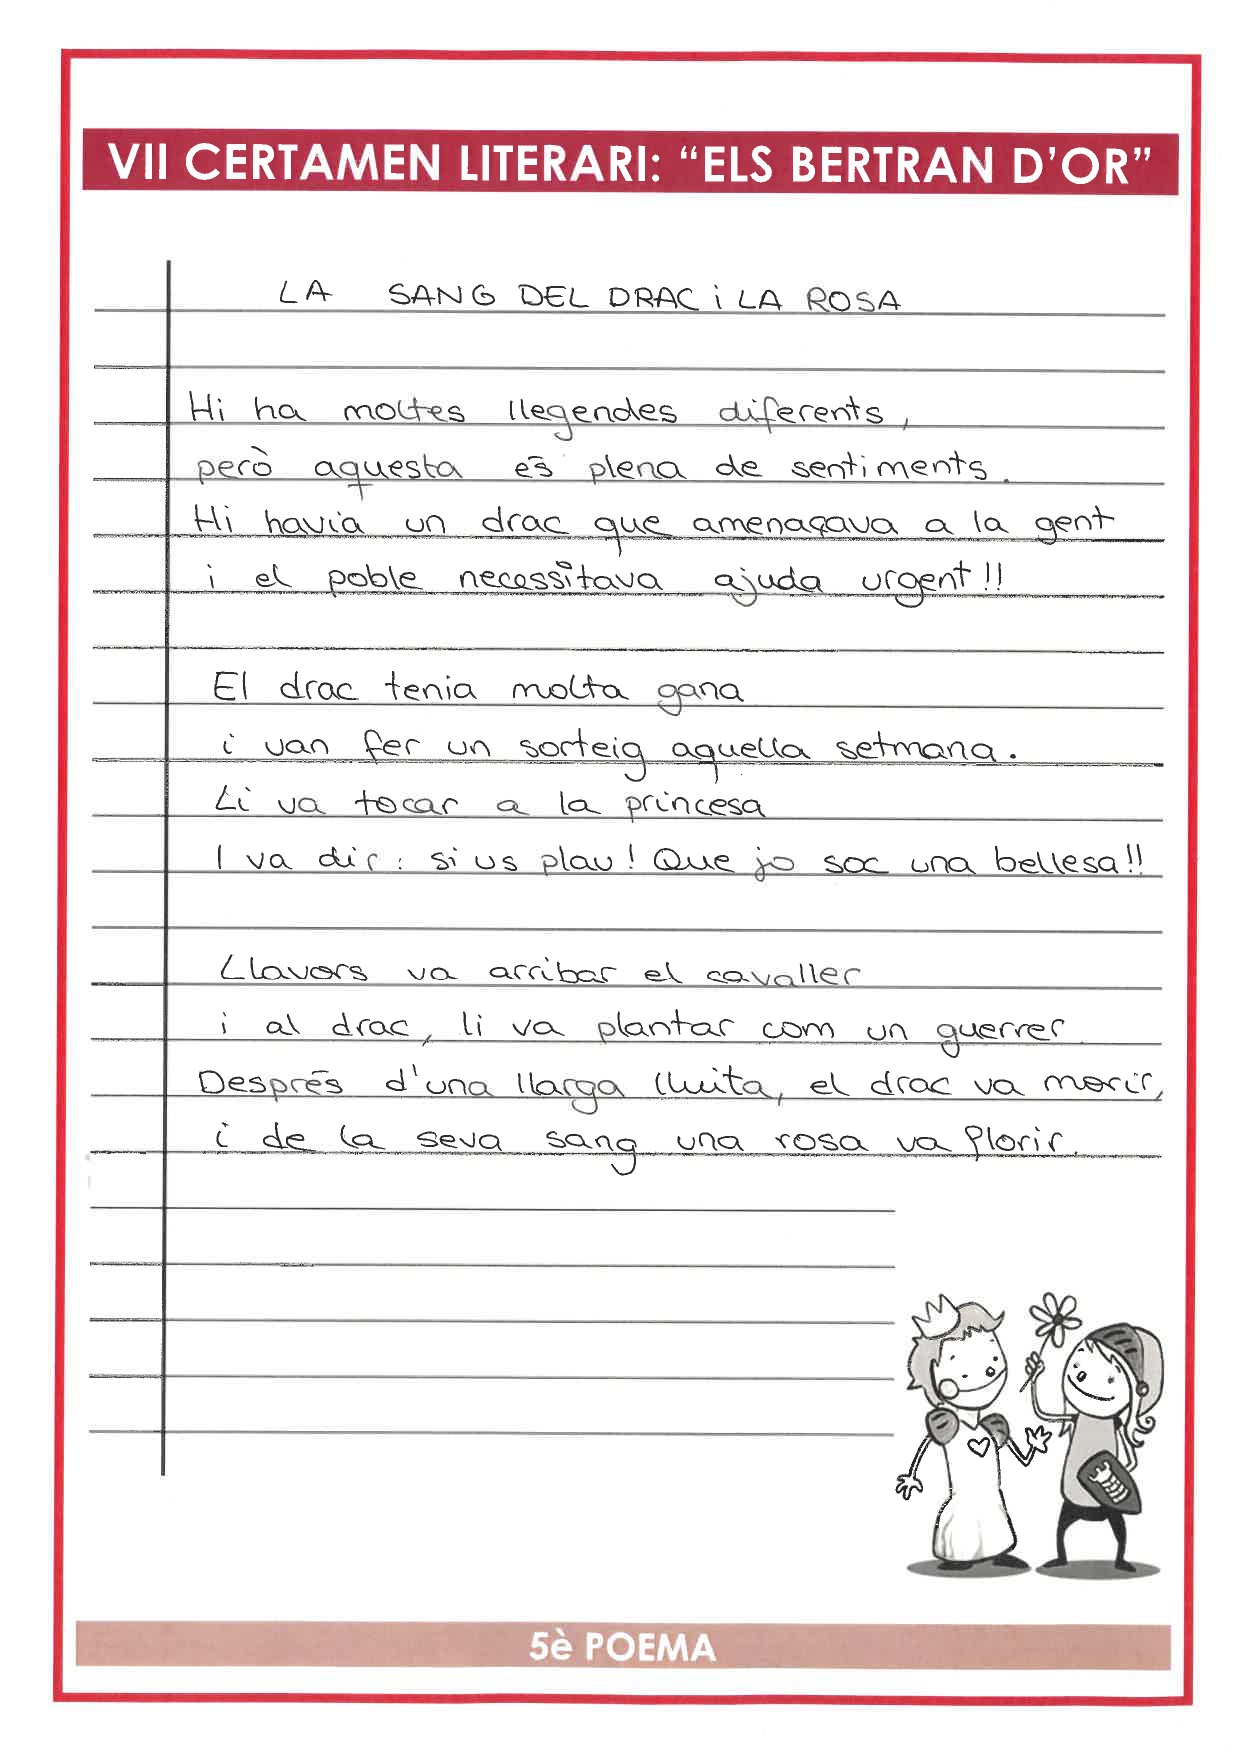 VII CERTAMEN LITERARI: “ELS BERTRAN D’OR”
LA SANG DEL DRAC i LA ROSA
Hi ha moltes llegendes diferents,
però aquesta és plena de sentiments.
Hi havia un drac que amenaçava a la gent
i el poble necessitava ajuda urgent!!
El drac tenia molta gana
i van fer un sorteig aquella setmana.
Li va tocar a la princesa
I va dir: si us plau! Que jo soc una bellesa!!
Llavors va arribar el cavaller
i al drac, li va plantar com un guerrer.
Després d'una llarga lluita, el drac va morir,
i de la seva sang una rosa va florir.
5è POEMA